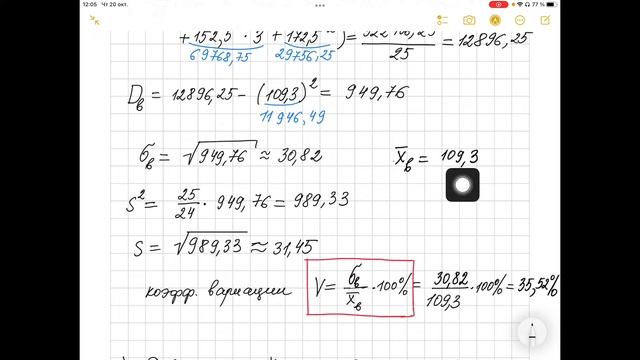 12:05 Чт 20 окт. 77 %
+152,5 · 3 + 172,5²) = = 12896,25
69768,75 29756,25 25
D_в = 12896,25 − (109,3)² = 949,76
11946,49
σ_в = √949,76 ≈ 30,82 x̅_в = 109,3
S² = 25/24 · 949,76 = 989,33
S = √989,33 ≈ 31,45
коэфф. вариации V = σ_в/x̅_в · 100% = 30,82/109,3 · 100% = 35,52%